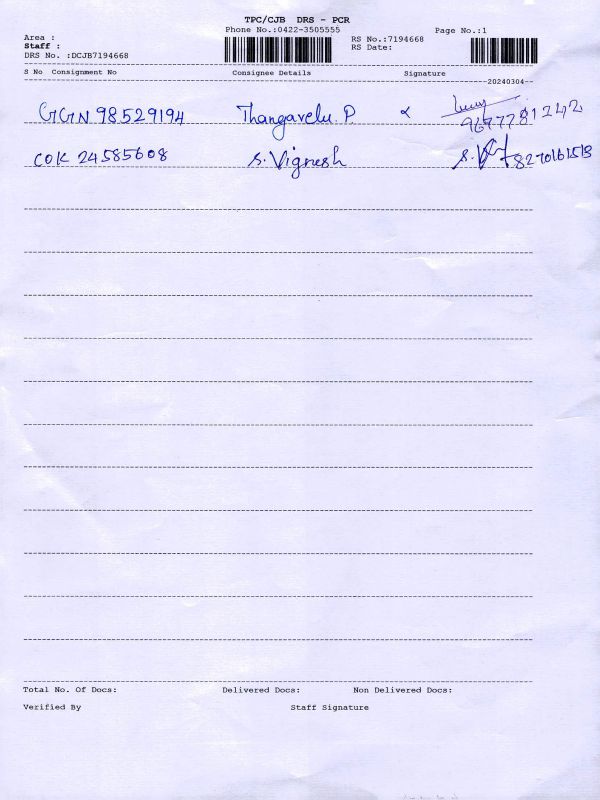 TPC/CJB DRS - PCR
Phone No.:0422-3505555
Page No.:1
Area :
RS No.:7194668
Staff :
RS Date:
DRS No. :DCJB7194668
S No Consignment No Consignee Details Signature
20240304
GGN 98529194 Thangavelu. P
9677781242
COK 24585608 S. Vignesh
8270161513
Total No. Of Docs: Delivered Docs: Non Delivered Docs:
Verified By Staff Signature